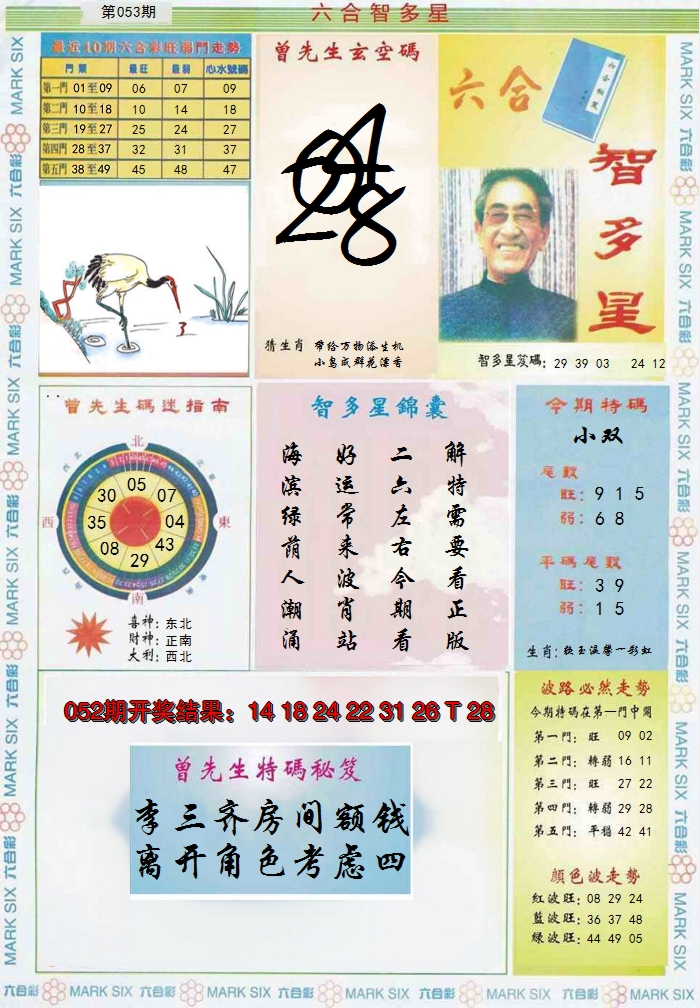 第053期
六合智多星
最近10期六合彩旺弱門走勢
門類 最旺 最弱 心水號碼
第一門 01至09 06 07 09
第二門 10至18 10 14 18
第三門 19至27 25 24 27
第四門 28至37 32 31 37
第五門 38至49 45 48 47
3
曾先生玄空碼
28
猜生肖 帶给万物添生机
小鸟成群花漂香
六合
智多星
智多星笈碼: 29 39 03 24 12
曾先生碼迷指南
北
西 東
南
05
30 07
35 04
08 43
29
喜神: 东北
財神: 正南
大利: 西北
智多星錦囊
海滨绿荫人潮涌
好运常来波肖站
二六左右今期看
解特需要看正版
今期特碼
小双
尾數
旺: 9 1 5
弱: 6 8
平碼尾數
旺: 3 9
弱: 1 5
052期开奖结果: 14 18 24 22 31 26 T 28
曾先生特碼秘笈
李三齐房间额钱
离开角色考虑四
波路必然走勢
今期特碼在第一門中開
第一門: 旺 09 02
第二門: 轉弱 16 11
第三門: 旺 27 22
第四門: 轉弱 29 28
第五門: 平穩 42 41
顏色波走勢
紅波旺: 08 29 24
藍波旺: 36 37 48
綠波旺: 44 49 05
六合彩 MARK SIX 六合彩 MARK SIX 六合彩 MARK SIX 六合彩 MARK SIX 六合彩 MARK SIX